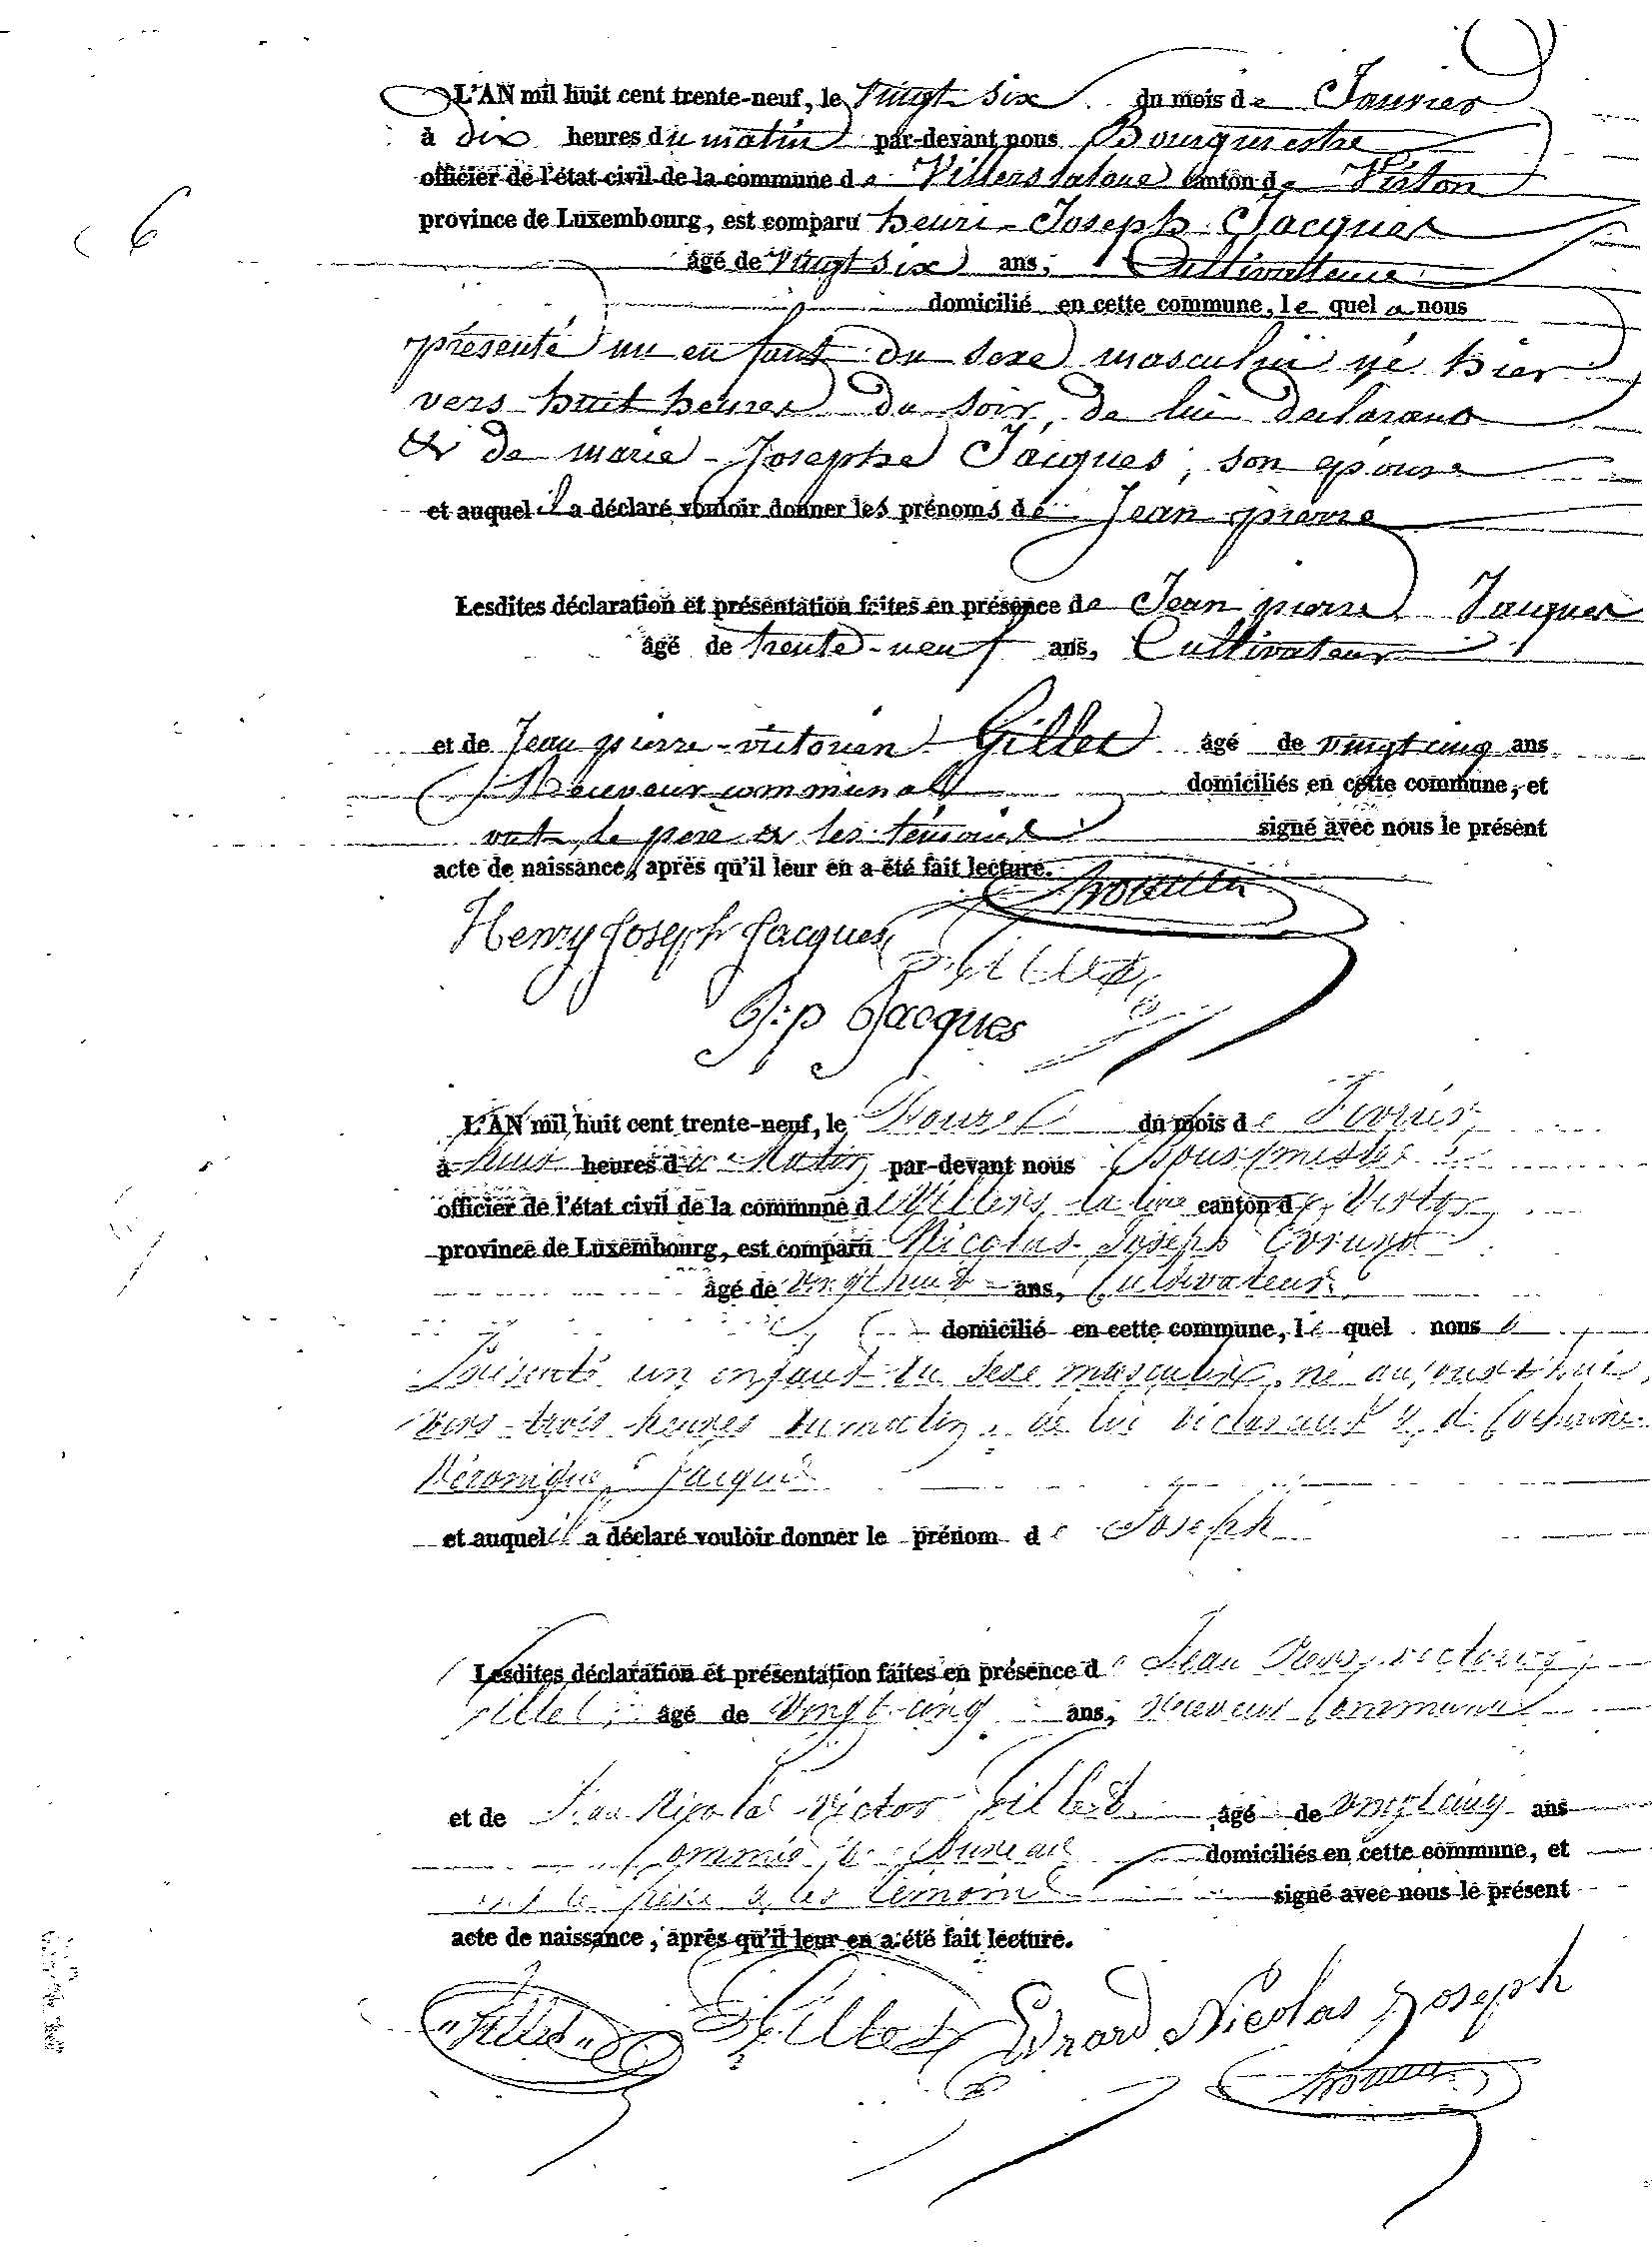 L'AN mil huit cent trente-neuf, le vingt six du mois de Janvier
à dix heures du matin par-devant nous Bourguestre
officier de l'état civil de la commune de Villers la loue canton de Virton
6
province de Luxembourg, est comparu henri-Joseph Jacques
âgé de vingt six ans, Cultivateur
domicilié en cette commune, le quel a nous
présenté un enfant du sexe masculin né hier
vers huit heures du soir, de lui declarant
& de marie-Josephe Jacques, son epouse
et auquel il a déclaré vouloir donner les prénoms de Jean pierre
Lesdites déclaration et présentation faites en présence de Jean pierre Jacques
âgé de trente-neuf ans, Cultivateur
et de Jean pierre-victorien Gillet âgé de vingt cinq ans
Receveur communal domiciliés en cette commune, et
ont le pere & les témoins signé avec nous le présent
acte de naissance, après qu'il leur en a été fait lecture.
Henry Joseph Jacques
Gillet
J:p Jacques
L'AN mil huit cent trente-neuf, le du mois de Fevrier
à heures du Matin par-devant nous Bourgmestre
officier de l'état civil de la commune de Villers la loue canton de Virton
province de Luxembourg, est comparu Nicolas Joseph Evrard
âgé de vingt huit ans, Cultivateur
domicilié en cette commune, le quel nous a
Présenté un enfant du sexe masculin, né aujourd'hui
vers trois heures du matin, de lui déclarant & de Catherine
Véronique Jacques
et auquel il a déclaré vouloir donner le prénom de Joseph
Lesdites déclaration et présentation faites en présence de Jean Pierre victorien
Gillet âgé de Vingt-cinq ans, Receveur Communal
et de Jean Nicolas Victor Gillet âgé de vingt cinq ans
Commis de Bureau domiciliés en cette commune, et
ont le père & les témoins signé avec nous le présent
acte de naissance, après qu'il leur en a été fait lecture.
Gillet Gillet Evrard Nicolas Joseph